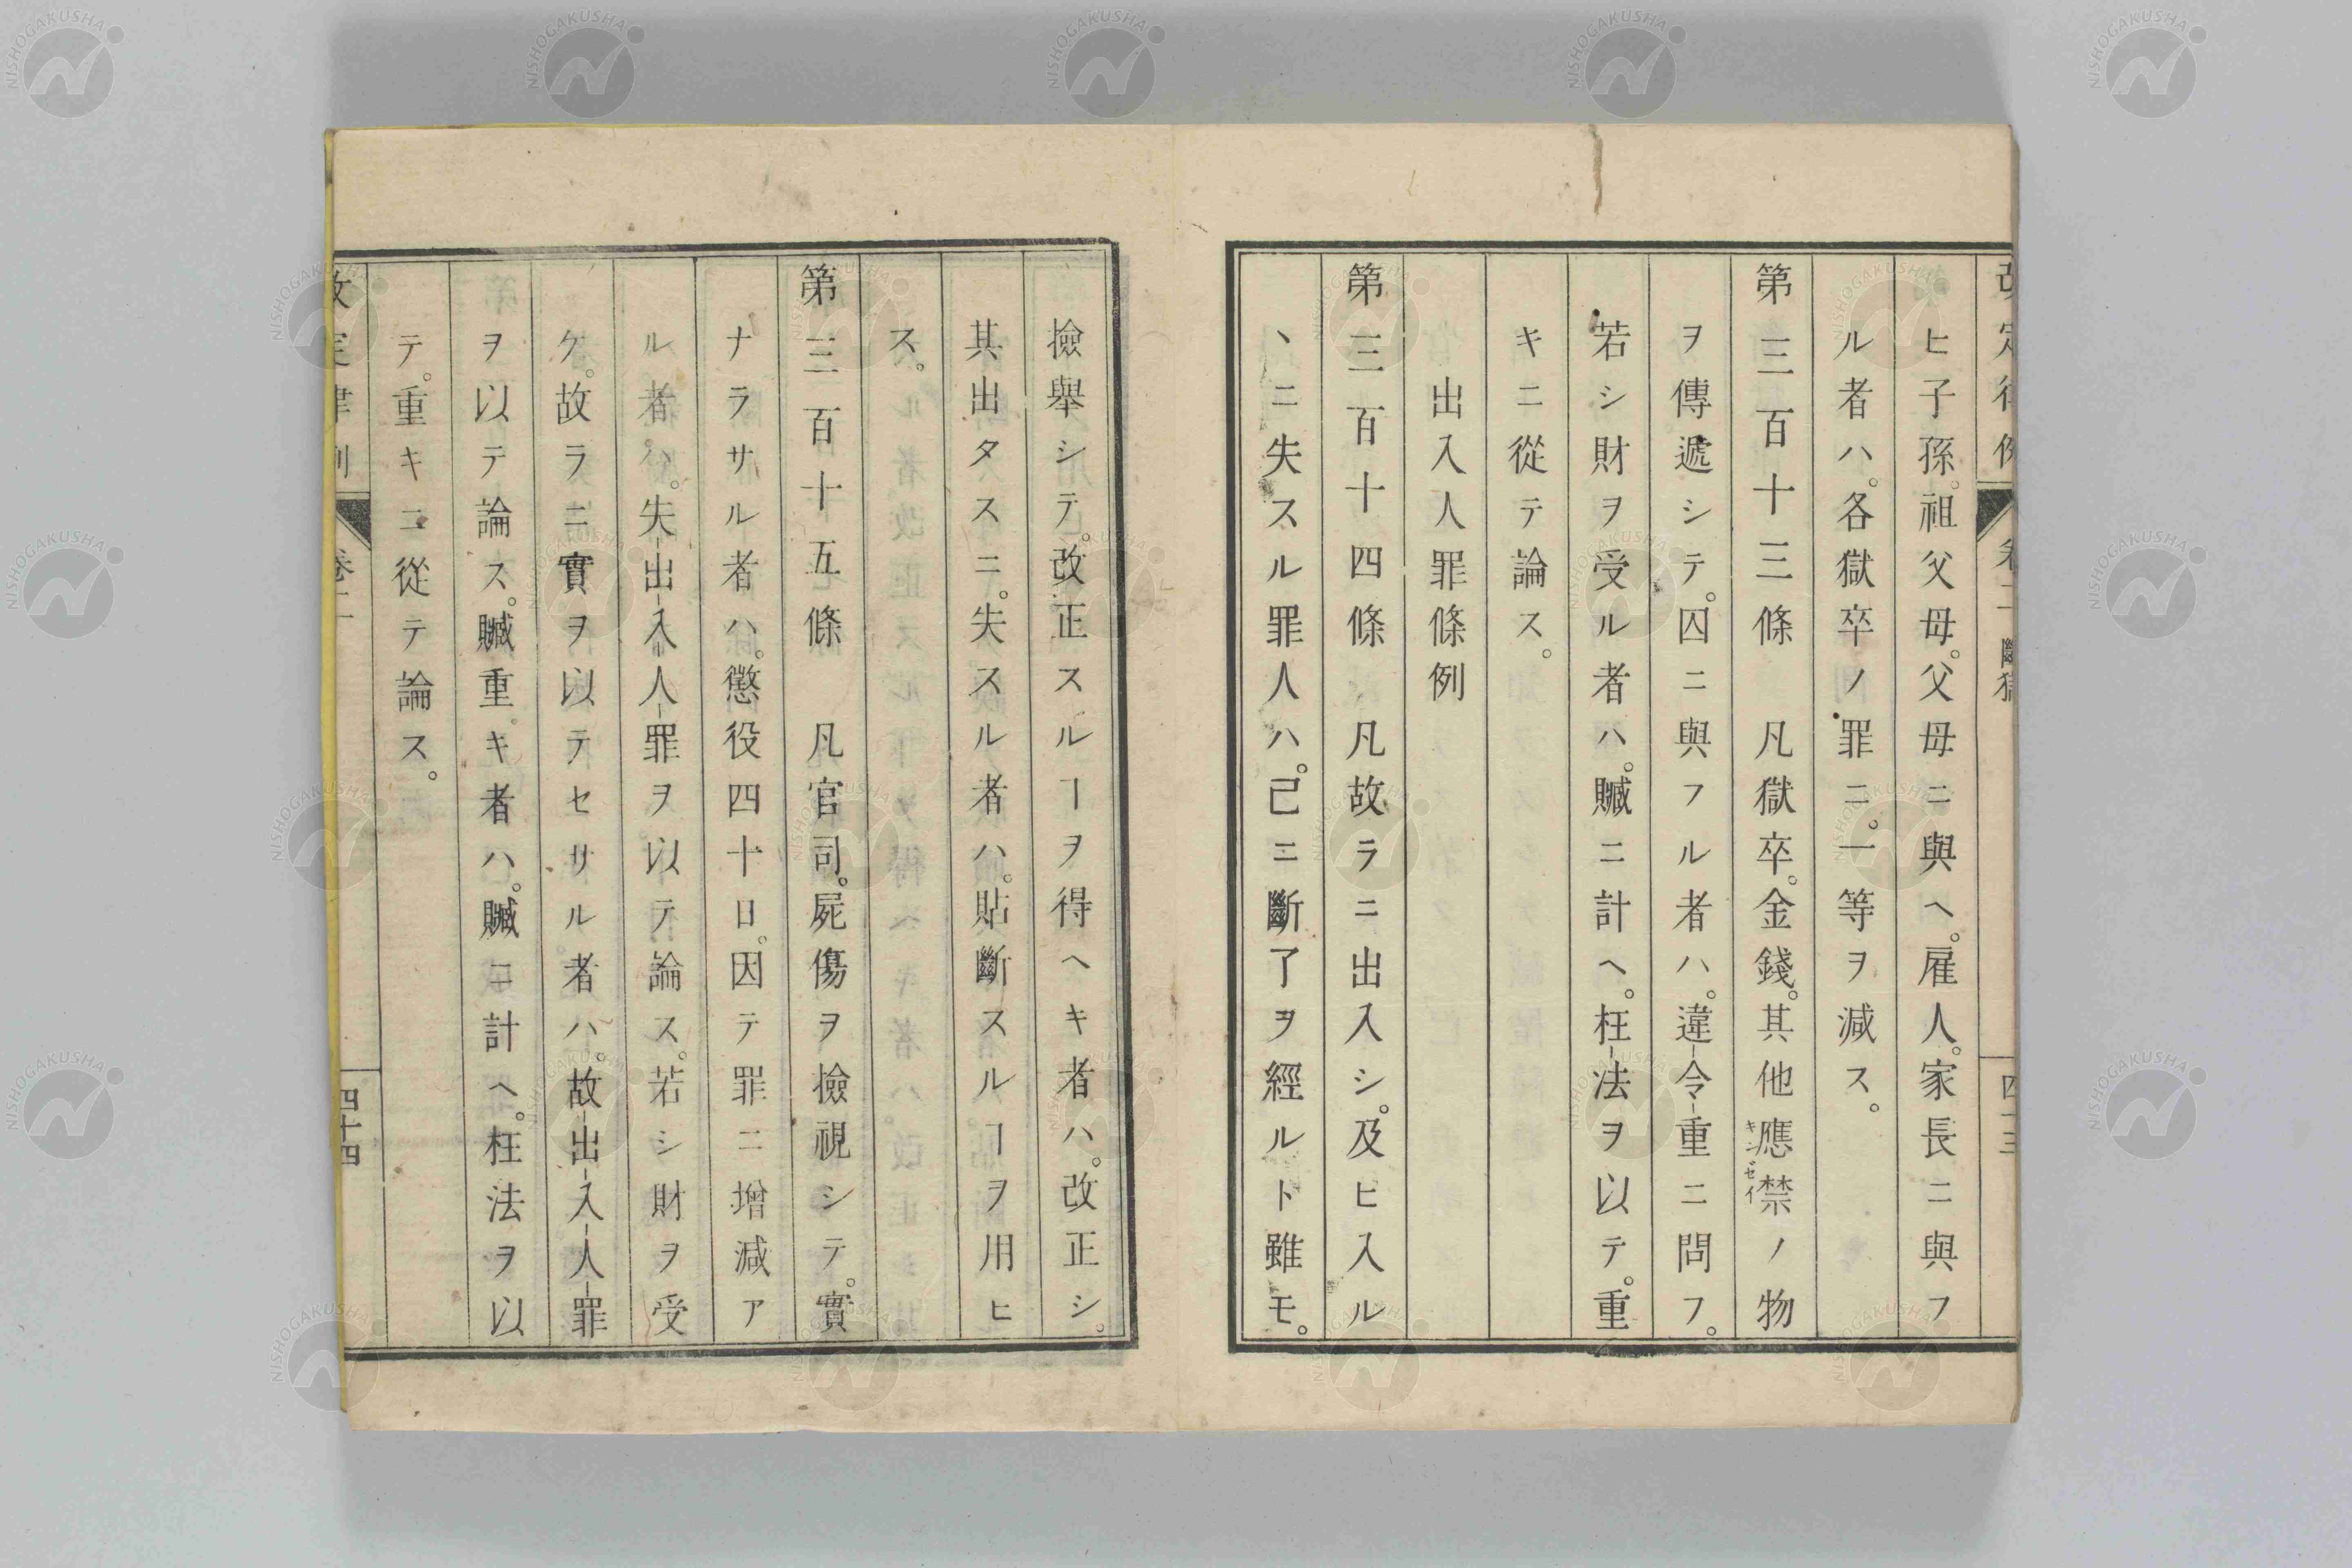 ヒ子孫。祖父母。父母ニ與ヘ。雇人。家長ニ與フ
ル者ハ。各獄卒ノ罪ニ。一等ヲ減ス。
第三百十三條　凡獄卒。金錢。其他應禁ノ物
キンゼイ
ヲ傳遞シテ。囚ニ與フル者ハ。違令重ニ問フ。
若シ財ヲ受ル者ハ。贓ニ計ヘ。枉法ヲ以テ。重
キニ從テ論ス。
出入人罪條例
第三百十四條　凡故ラニ出入シ。及ヒ入ル
ヽニ失スル罪人ハ。已ニ斷了ヲ經ルト雖モ。
撿舉シテ。改正スルヿヲ得ヘキ者ハ。改正シ。
其出タスニ。失スル者ハ。貼斷スルヿヲ用ヒ
ス。
第三百十五條　凡官司。屍傷ヲ撿視シテ。實
ナラサル者ハ。懲役四十日。因テ罪ニ增減ア
ル者ハ。失出入人罪ヲ以テ論ス。若シ財ヲ受
ケ。故ラニ實ヲ以テセサル者ハ。故出入人罪
ヲ以テ論ス。贓重キ者ハ。贓ニ計ヘ。枉法ヲ以
テ。重キニ從テ論ス。
改定律例　卷二　四十四
NISHOGAKUSHA